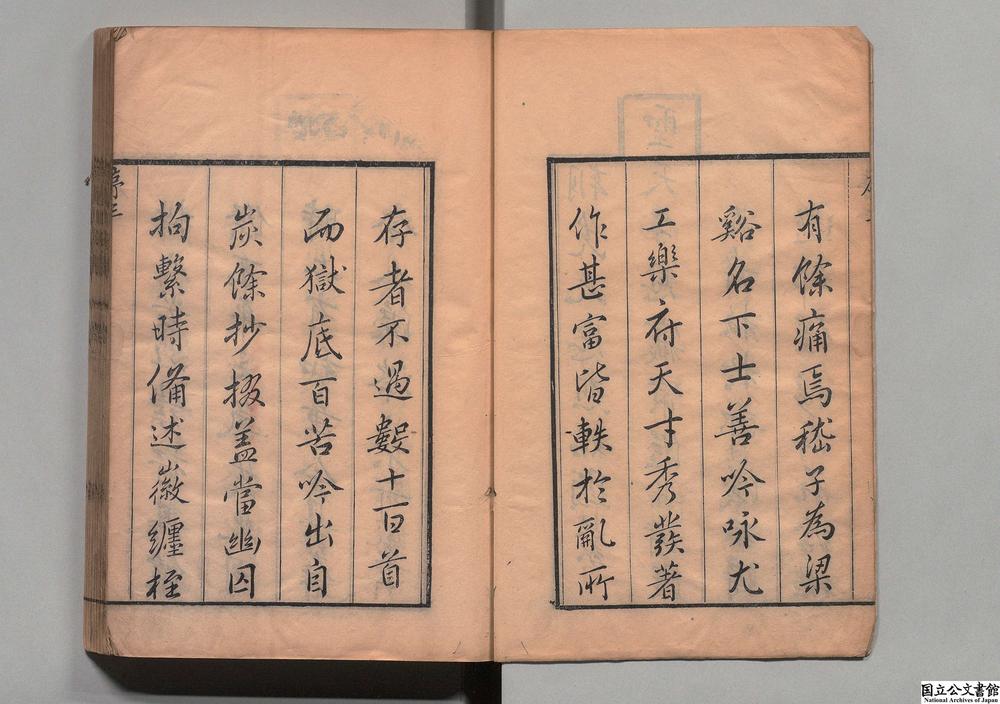 有餘痛焉嵇子為梁
谿名下士善吟咏尤
工樂府天才秀發著
作甚富皆軼於亂所
存者不過數十百首
而獄底百苦吟出自
炭餘抄掇蓋當幽囚
拘繫時備述徽纏桎
序三
国立公文書館
National Archives of Japan